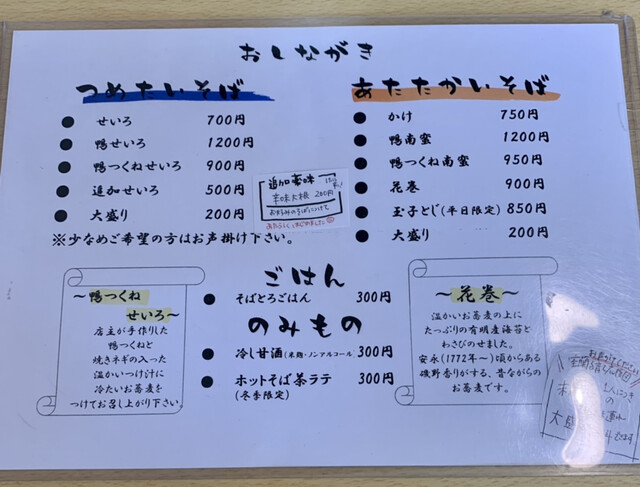 おしながき
つめたいそば
せいろ 700円
鴨せいろ 1200円
鴨つくねせいろ 900円
追加せいろ 500円
大盛り 200円
※少なめご希望の方はお声掛け下さい。
あたたかいそば
かけ 750円
鴨南蛮 1200円
鴨つくね南蛮 950円
花巻 900円
玉子とじ(平日限定) 850円
大盛り 200円
追加薬味
辛味大根 200円
お好みのそばにつけて
ごはん
そばとろごはん 300円
のみもの
冷し甘酒(米麹・ノンアルコール 300円
ホットそば茶ラテ 300円
(冬季限定)
〜鴨つくね
せいろ〜
店主が手作りした
鴨つくねと
焼きネギの入った
温かいつけ汁に
冷たいお蕎麦を
つけてお召し上がり下さい。
〜花巻〜
温かいお蕎麦の上に
たっぷりの有明産海苔と
わさびのせました。
安永(1772年〜)頃からある
磯野香りがする、昔ながらの
お蕎麦です。